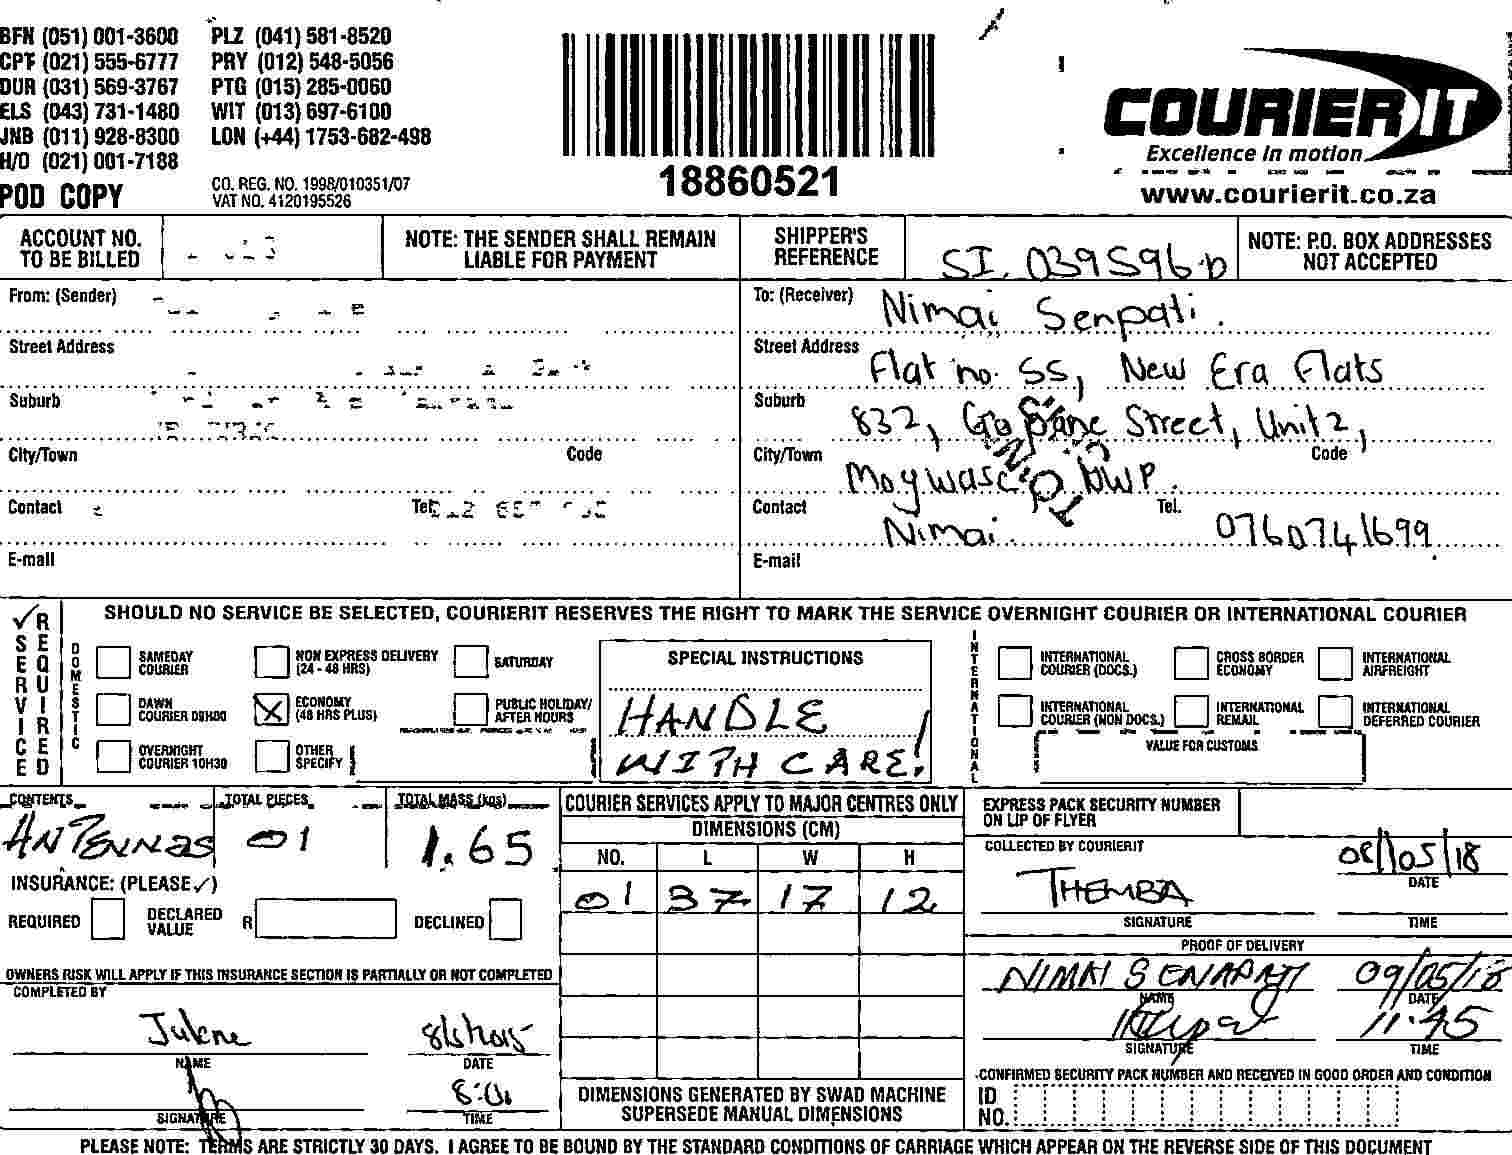 BFN (051) 001-3600 PLZ (041) 581-8520
CPT (021) 555-6777 PRY (012) 548-5056
DUR (031) 569-3767 PTG (015) 285-0060
ELS (043) 731-1480 WIT (013) 697-6100
JNB (011) 928-8300 LON (+44) 1753-682-498
H/O (021) 001-7188
POD COPY
CO. REG. NO. 1998/010351/07
VAT NO. 4120195526
18860521
COURIER IT
Excellence in motion
www.courierit.co.za
ACCOUNT NO. TO BE BILLED
NOTE: THE SENDER SHALL REMAIN LIABLE FOR PAYMENT
SHIPPER'S REFERENCE SI.039596.D
NOTE: P.O. BOX ADDRESSES NOT ACCEPTED
From: (Sender)
Street Address
Suburb
City/Town Code
Contact Tel:
E-mail
To: (Receiver) Nimai Senpati.
Street Address Flat no. 55, New Era Flats
Suburb 832, Street, Unit 2,
City/Town Code
NWP.
Contact Nimai. Tel. 0760741699
E-mail
✓ SERVICE REQUIRED
SHOULD NO SERVICE BE SELECTED, COURIERIT RESERVES THE RIGHT TO MARK THE SERVICE OVERNIGHT COURIER OR INTERNATIONAL COURIER
DOMESTIC
SAMEDAY COURIER
NON EXPRESS DELIVERY (24 - 48 HRS)
SATURDAY
DAWN COURIER 09H00
X ECONOMY (48 HRS PLUS)
PUBLIC HOLIDAY/ AFTER HOURS
OVERNIGHT COURIER 10H30
OTHER SPECIFY
SPECIAL INSTRUCTIONS
HANDLE
WITH CARE!
INTERNATIONAL
INTERNATIONAL COURIER (DOCS.)
CROSS BORDER ECONOMY
INTERNATIONAL AIRFREIGHT
INTERNATIONAL COURIER (NON DOCS.)
INTERNATIONAL REMAIL
INTERNATIONAL DEFERRED COURIER
VALUE FOR CUSTOMS
CONTENTS TOTAL PIECES TOTAL MASS (kgs)
ANTENNAS 01 1.65
INSURANCE: (PLEASE ✓)
REQUIRED DECLARED VALUE R DECLINED
OWNERS RISK WILL APPLY IF THIS INSURANCE SECTION IS PARTIALLY OR NOT COMPLETED
COMPLETED BY
Julene
NAME DATE
SIGNATURE TIME
COURIER SERVICES APPLY TO MAJOR CENTRES ONLY
DIMENSIONS (CM)
NO. L W H
01 37 17 12
DIMENSIONS GENERATED BY SWAD MACHINE
SUPERSEDE MANUAL DIMENSIONS
EXPRESS PACK SECURITY NUMBER ON LIP OF FLYER
COLLECTED BY COURIERIT
THEMBA 08/05/18
DATE
SIGNATURE TIME
PROOF OF DELIVERY
NIMAI SENAPATI 09/05/18
NAME DATE
11:45
SIGNATURE TIME
CONFIRMED SECURITY PACK NUMBER AND RECEIVED IN GOOD ORDER AND CONDITION
ID NO.
PLEASE NOTE: TERMS ARE STRICTLY 30 DAYS. I AGREE TO BE BOUND BY THE STANDARD CONDITIONS OF CARRIAGE WHICH APPEAR ON THE REVERSE SIDE OF THIS DOCUMENT